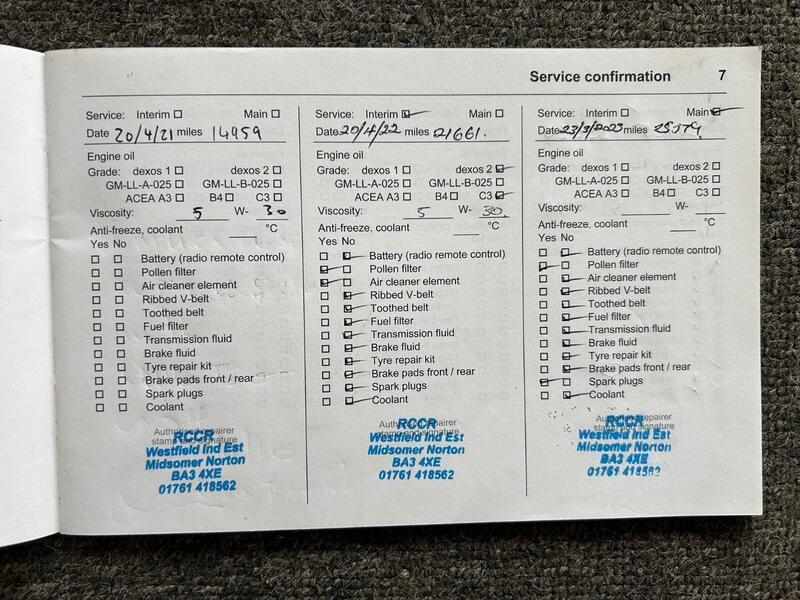 Service confirmation 7
Service: Interim Main
Date 20/4/21 miles 14959
Engine oil
Grade: dexos 1 dexos 2
GM-LL-A-025 GM-LL-B-025
ACEA A3 B4 C3
Viscosity: 5 W- 30
Anti-freeze, coolant °C
Yes No
Battery (radio remote control)
Pollen filter
Air cleaner element
Ribbed V-belt
Toothed belt
Fuel filter
Transmission fluid
Brake fluid
Tyre repair kit
Brake pads front / rear
Spark plugs
Coolant
Authorised repairer
stamp and signature
RCCR
Westfield Ind Est
Midsomer Norton
BA3 4XE
01761 418562
Service: Interim Main
Date 20/4/22 miles 21661.
Engine oil
Grade: dexos 1 dexos 2
GM-LL-A-025 GM-LL-B-025
ACEA A3 B4 C3
Viscosity: 5 W- 30.
Anti-freeze, coolant °C
Yes No
Battery (radio remote control)
Pollen filter
Air cleaner element
Ribbed V-belt
Toothed belt
Fuel filter
Transmission fluid
Brake fluid
Tyre repair kit
Brake pads front / rear
Spark plugs
Coolant
Authorised repairer
stamp and signature
RCCR
Westfield Ind Est
Midsomer Norton
BA3 4XE
01761 418562
Service: Interim Main
Date 23/3/2023 miles
Engine oil
Grade: dexos 1 dexos 2
GM-LL-A-025 GM-LL-B-025
ACEA A3 B4 C3
Viscosity: W-
Anti-freeze, coolant °C
Yes No
Battery (radio remote control)
Pollen filter
Air cleaner element
Ribbed V-belt
Toothed belt
Fuel filter
Transmission fluid
Brake fluid
Tyre repair kit
Brake pads front / rear
Spark plugs
Coolant
Authorised repairer
stamp and signature
RCCR
Westfield Ind Est
Midsomer Norton
BA3 4XE
01761 418562